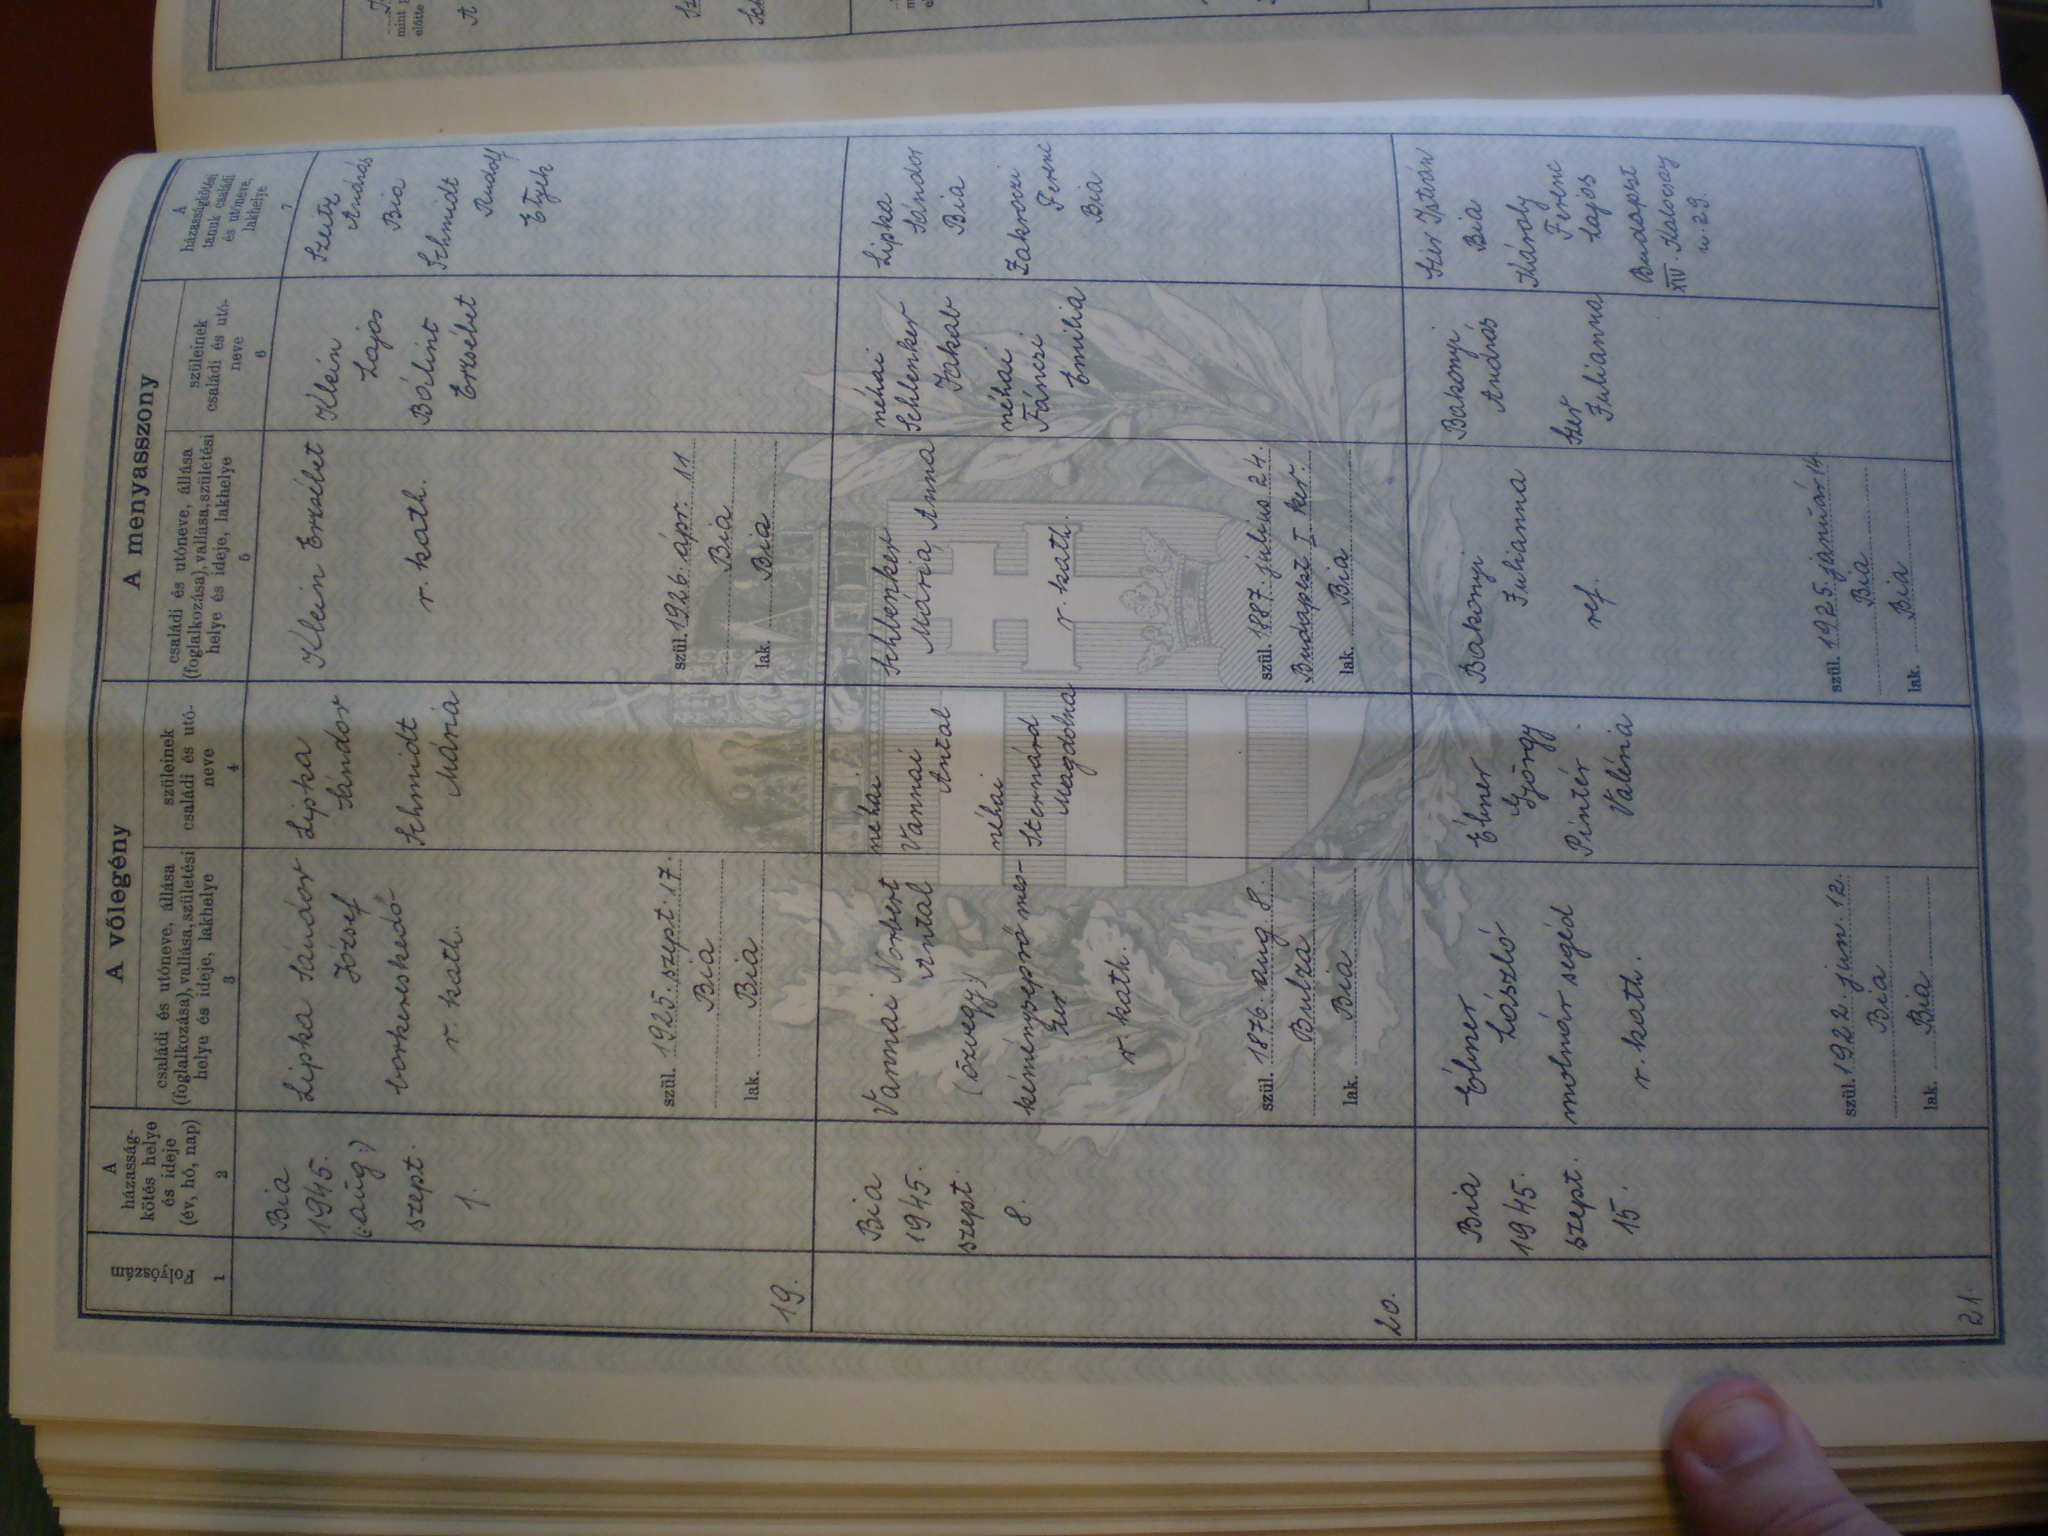 A vőlegény
A menyasszony
Folyószám
1
A
házasság-
kötés helye
és ideje
(év, hó, nap)
2
családi és utóneve, állása
(foglalkozása), vallása, születési
helye és ideje, lakhelye
3
szüleinek
családi és utó-
neve
4
családi és utóneve, állása
(foglalkozása), vallása, születési
helye és ideje, lakhelye
5
szüleinek
családi és utó-
neve
6
A
házasságkötési
tanuk családi
és utóneve,
lakhelye
7
19.
Bia
1945.
(:aug:)
szept.
1.
Lipka Sándor
József
borkereskedő
r. kath.
szül. 1925. szept. 17.
Bia
lak. Bia
Lipka
Sándor
Schmidt
Mária
Klein Erzsébet
r. kath.
szül. 1926. ápr. 11
Bia
lak. Bia
Klein
Lajos
Bálint
Erzsébet
András
Bia
Schmidt
Rudolf
Etyek
20.
Bia
1945.
szept.
8.
Vannai Norbert
Antal
(özvegy)
kéményseprő mes-
ter
r. kath.
szül. 1876. aug. 8.
lak. Bia
néhai
Vannai
Antal
néhai
Magdolna
Schlenker
Mária, Anna
r. kath.
szül. 1887. július 24.
Budapest I. ker.
lak. Bia
néhai
Schlenker
Jakab
néhai
Fánczi
Emilia
Lipka
Sándor
Bia
Zakroczi
Ferenc
Bia
21.
Bia
1945.
szept.
15.
Ébner
László
molnár segéd
r. kath.
szül. 1922. jun. 12.
Bia
lak. Bia
Ébner
György
Pintér
Valéria
Bakonyi
Julianna
ref.
szül. 1925. január 14.
Bia
lak. Bia
Bakonyi
András
Szer
Julianna
Szer István
Bia
Károly
Ferenc
Lajos
Budapest
XIV. Kalocsay
u. 29.